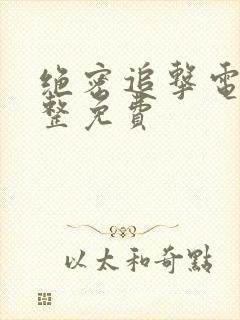 絶密追擊電
整免費
以太和奇點